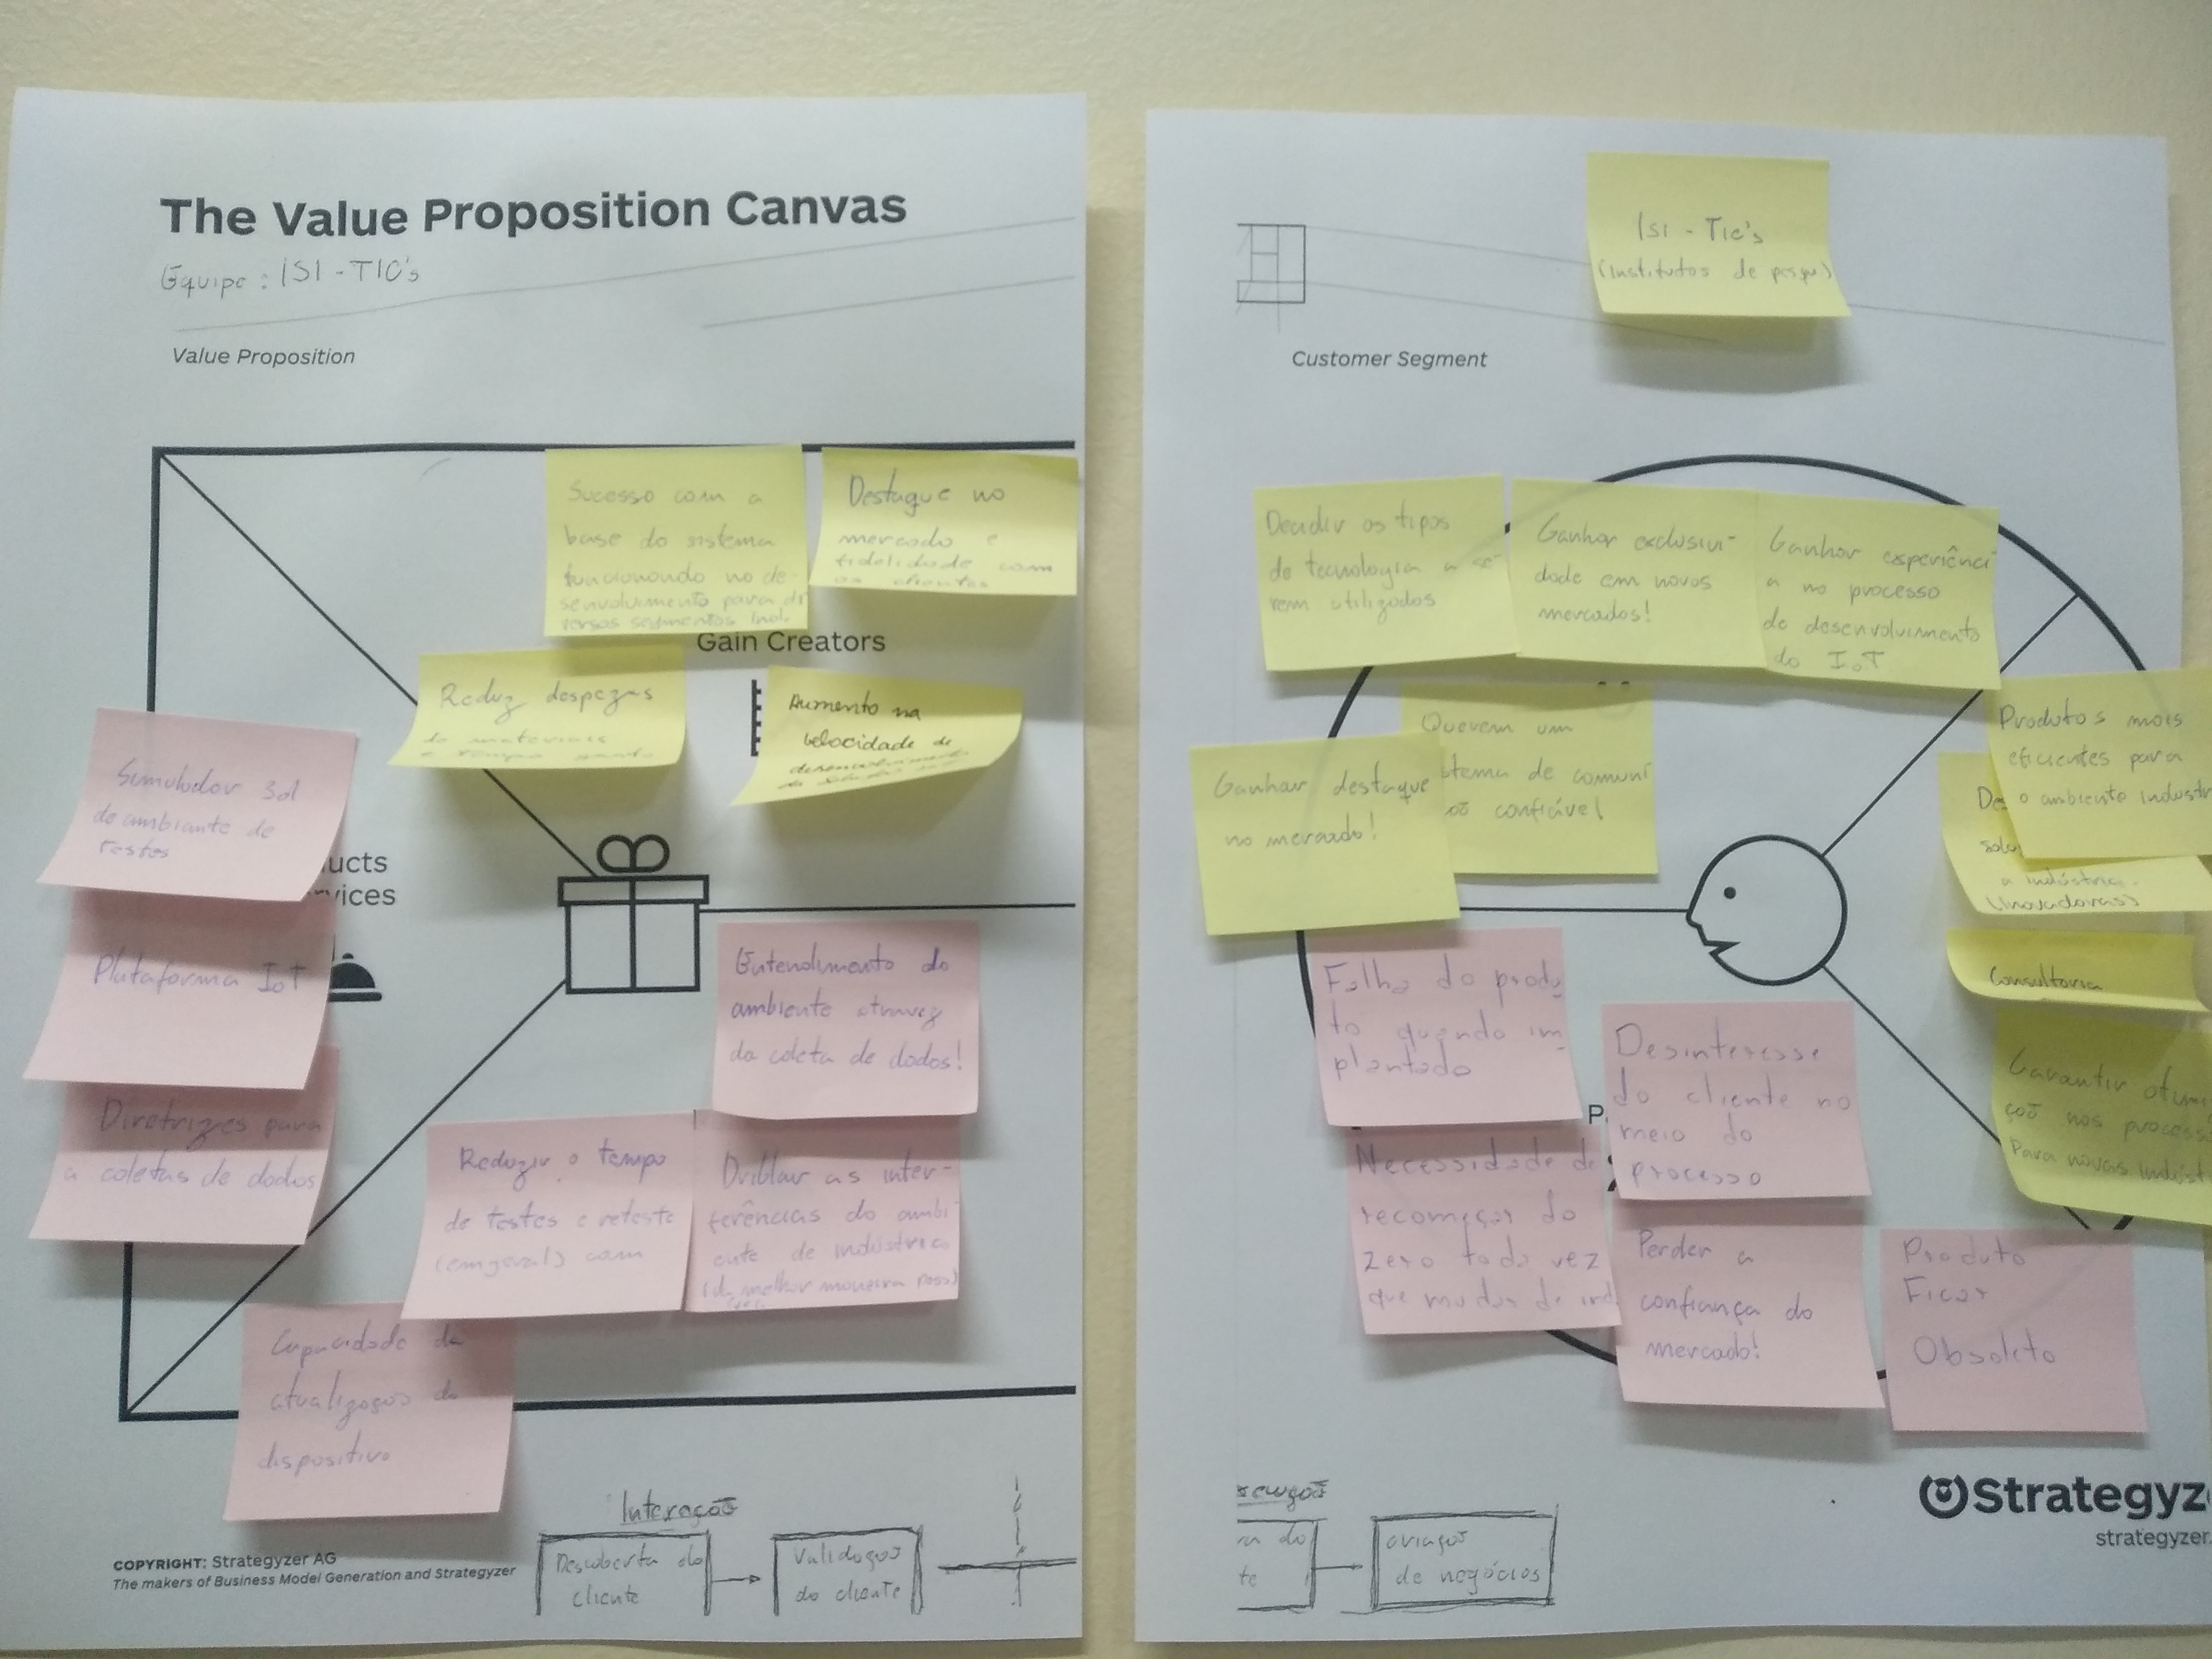 The Value Proposition Canvas
Equipe : ISI - TIC's
Value Proposition
Sucesso com a
base do sistema
funcionando no de-
senvolvimento para di
versos segmentos Ind.
Destaque no
mercado e
fidelidade com
os clientes
Gain Creators
Reduz despezas
de materiais
e tempo gasto
Aumento na
velocidade de
desenvolvimento
Simulador 3d
do ambiente de
testes
ucts
rvices
Plataforma IoT
Diretrizes para
a coletas de dados
Entendimento do
ambiente atravez
da coleta de dados!
Reduzir o tempo
de testes e reteste
(em geral) com
Driblar as inter-
ferências do ambi-
ente de indústria
(da melhor maneira possi
Capacidade de
atualizações do
dispositivo
Interação
Descoberta do
cliente
Validação
do cliente
COPYRIGHT: Strategyzer AG
The makers of Business Model Generation and Strategyzer
ISI - TIC's
(Institutos de pesqui)
Customer Segment
Decidir os tipos
de tecnologia a se-
rem utilizados
Ganhar exclusivi-
dade em novos
mercados!
Ganhar experiênci
a no processo
de desenvolvimento
do IoT
Querem um
stema de comuni
confiável
Ganhar destaque
no mercado!
Produtos mais
eficientes para
o ambiente industr
Des
solu
a indústria.
(Inovadoras)
Consultoria
Garantir otimi
ção nos process
Para novas indúst
Falha do produ
to quando im-
plantado
Desinteresse
do cliente no
meio do
processo
P
Necessidade de
recomeçar do
zero toda vez
que mudar de ind
Perder a
confiança do
mercado!
Produto
Ficar
Obsoleto
ra do
te
criação
de negócios
Strategyz
strategyzer.